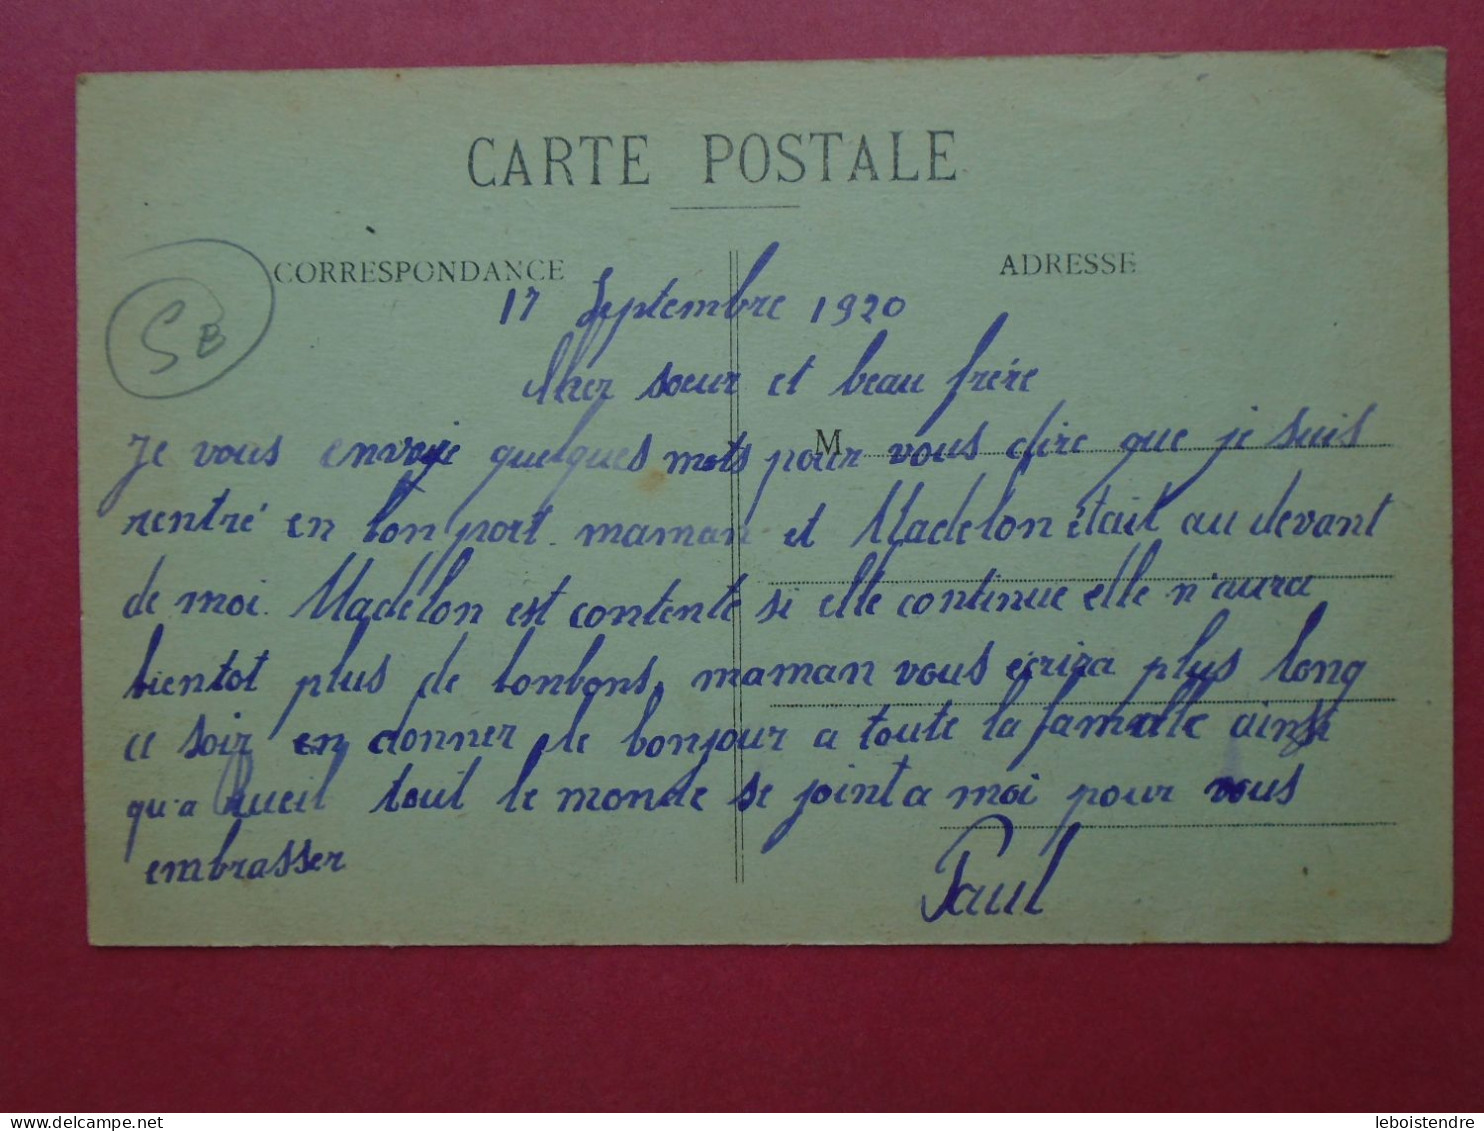 CARTE POSTALE
CORRESPONDANCE
ADRESSE
SB
17 Septembre 1920
Cher sœur et beau frère
M
Je vous envoje quelques mots pour vous dire que je suis
rentré en bon port. maman et Madelon était au devant
de moi. Madelon est contente si elle continue elle n'aura
bientot plus de bonbons, maman vous écrira plus long
ce soir en donner le bonjour a toute la famille ainsi
qu'a tout le monde se joint a moi pour vous
embrasser
Paul
leboistendre
www.delcampe.net